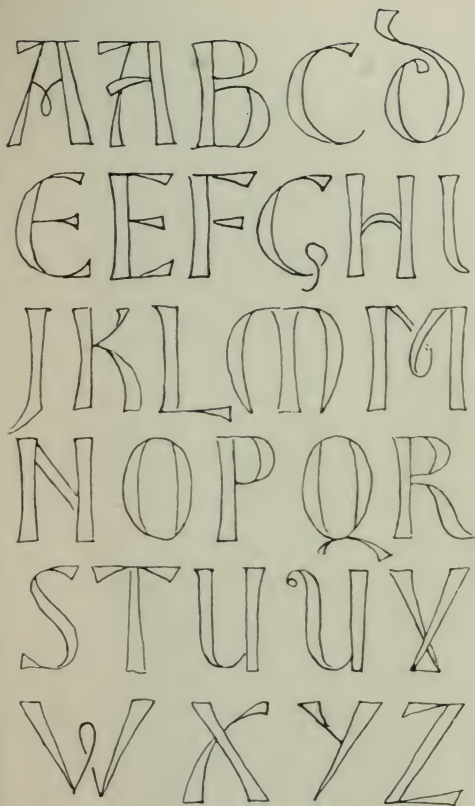 A A B C D
E E F G H I
J K L M M
N O P Q R
S T U U V
W X Y Z